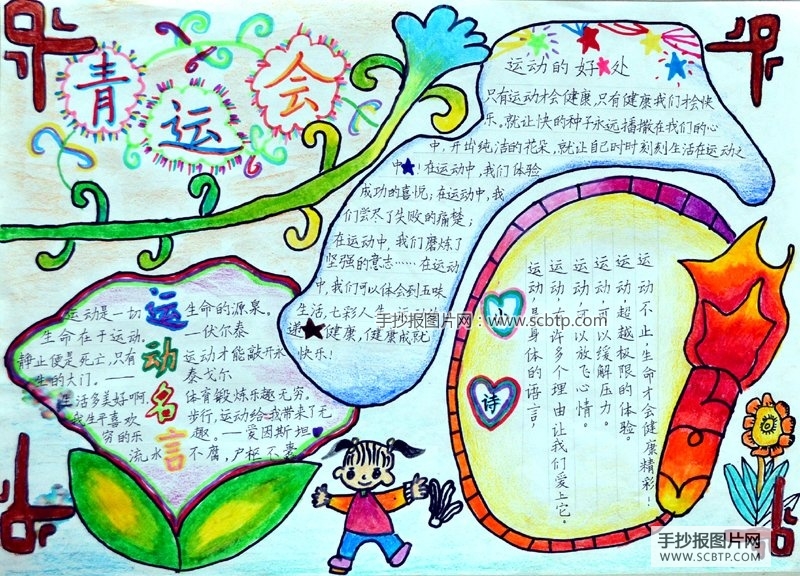 青运会
运动的好处
只有运动才会健康,只有健康我们才会快
乐。就让快的种子永远播撒在我们的心
中,开出纯洁的花朵,就让自己时时刻刻生活在运动之
中!在运动中,我们体验
成功的喜悦;在运动中,我
们尝尽了失败的痛楚;
在运动中,我们磨炼了
坚强的意志……在运动
中,我们可以体会到五味
生活,七彩人生
健康,健康成就
快乐!
运动名言
运动是一切生命的源泉。
生命在于运动。——伏尔泰
静止便是死亡,只有运动才能敲开永
生的大门。——泰戈尔
生活多美好啊,体育锻炼乐趣无穷。
我生平喜欢步行,运动给我带来了无
穷的乐趣。——爱因斯坦
流水不腐,户枢不蠹
小诗
运动,是身体的语言。
运动,有许多个理由让我们爱上它。
运动,可以放飞心情。
运动,可以缓解压力。
运动,超越极限的体验。
运动不止,生命才会健康精彩!
手抄报图片网:www.scbtp.com
手抄报图片网
WWW.SCBTP.COM